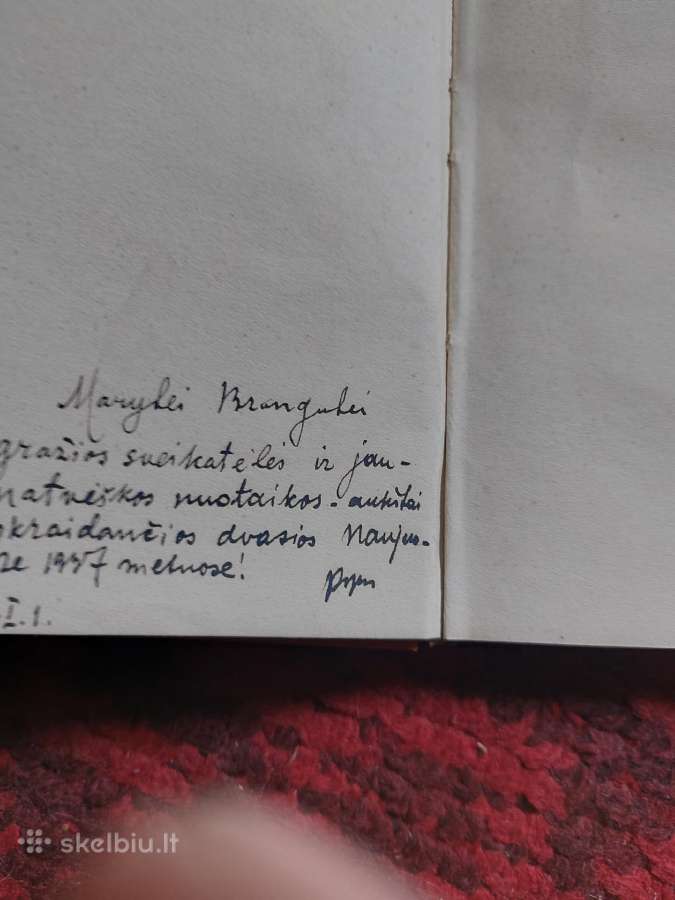 Marytei Brangutei
gražios sveikatėlės ir jau-
natvėškos nuotaikos - aukštai
skraidančios dvasios Naujuo-
se 1957 metuose!
I.1.
skelbiu.lt